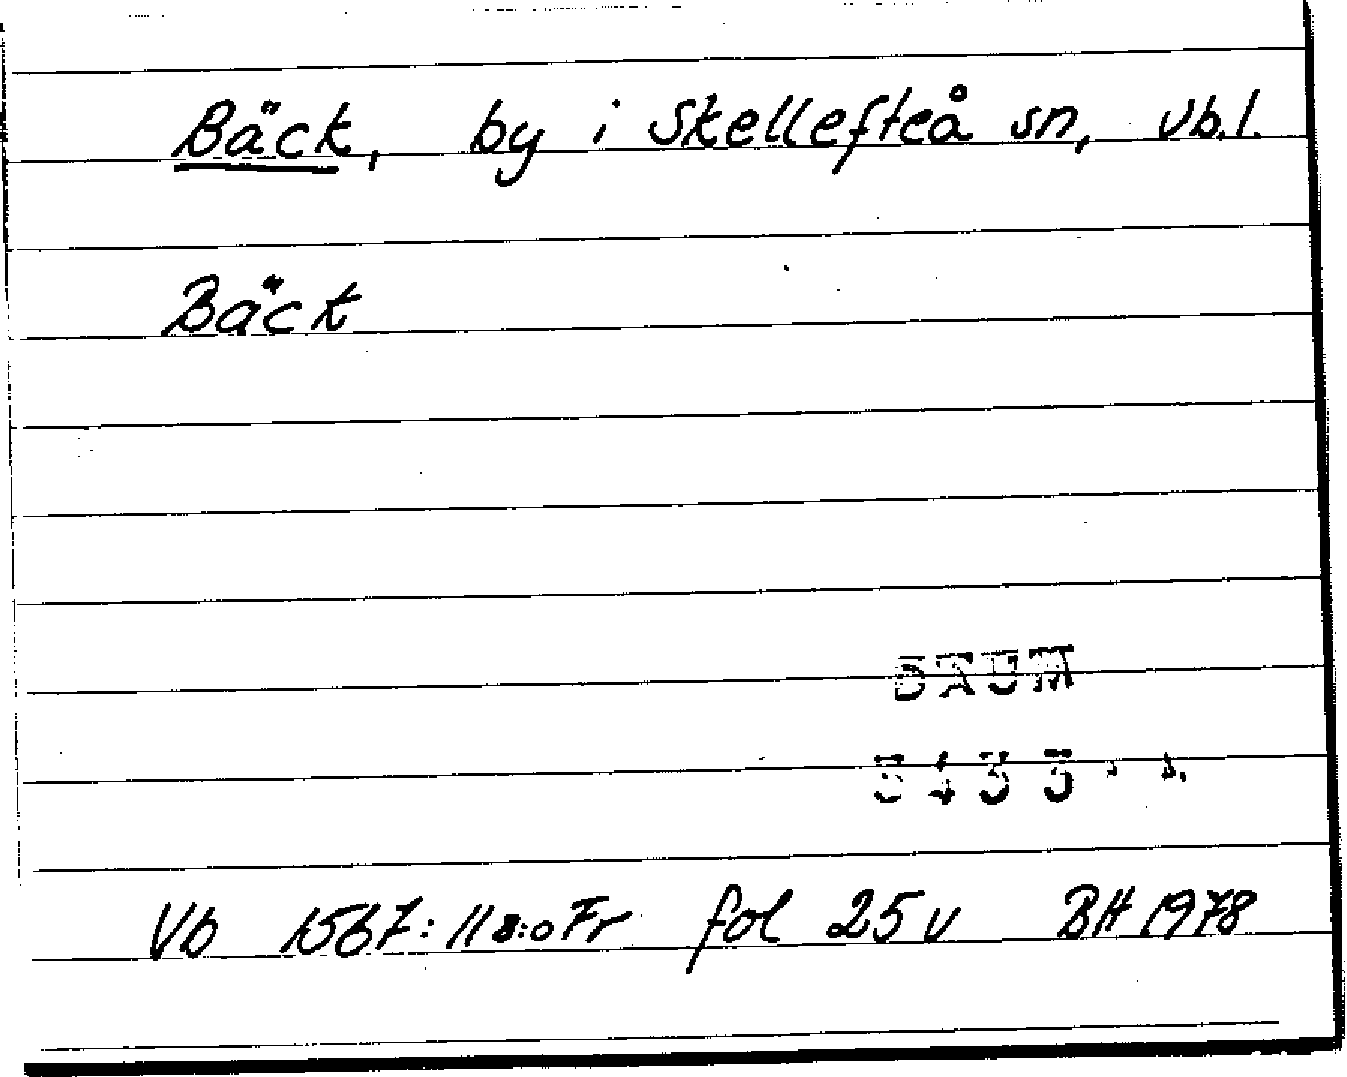 Bäck, by i Skellefteå sn, Vb.l.
Bäck
DAUM
Vb 1567: 11 8:o Fr fol 25 v BH 1978